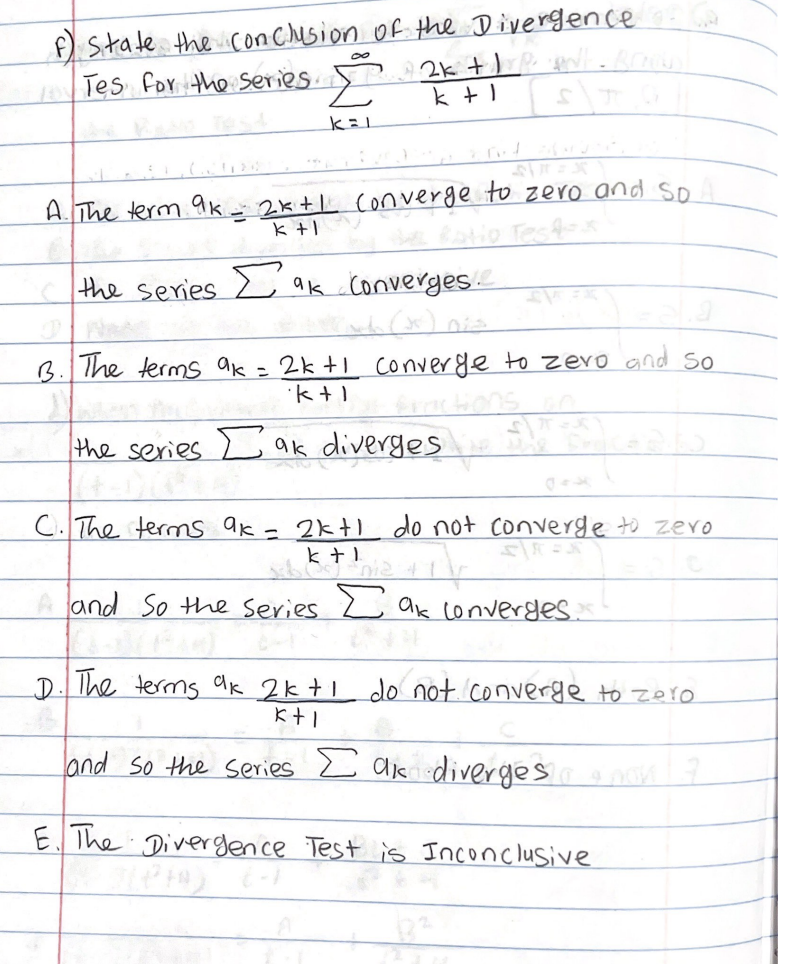 f) State the conclusion of the Divergence
Tes for the series ∑_{k=1}^{∞} (2k+1)/(k+1)
A. The term ak = (2k+1)/(k+1) converge to zero and so
the series ∑ ak converges.
B. The terms ak = (2k+1)/(k+1) converge to zero and so
the series ∑ ak diverges
C. The terms ak = (2k+1)/(k+1) do not converge to zero
and so the series ∑ ak converges.
D. The terms ak (2k+1)/(k+1) do not converge to zero
and so the series ∑ ak diverges
E. The Divergence Test is Inconclusive